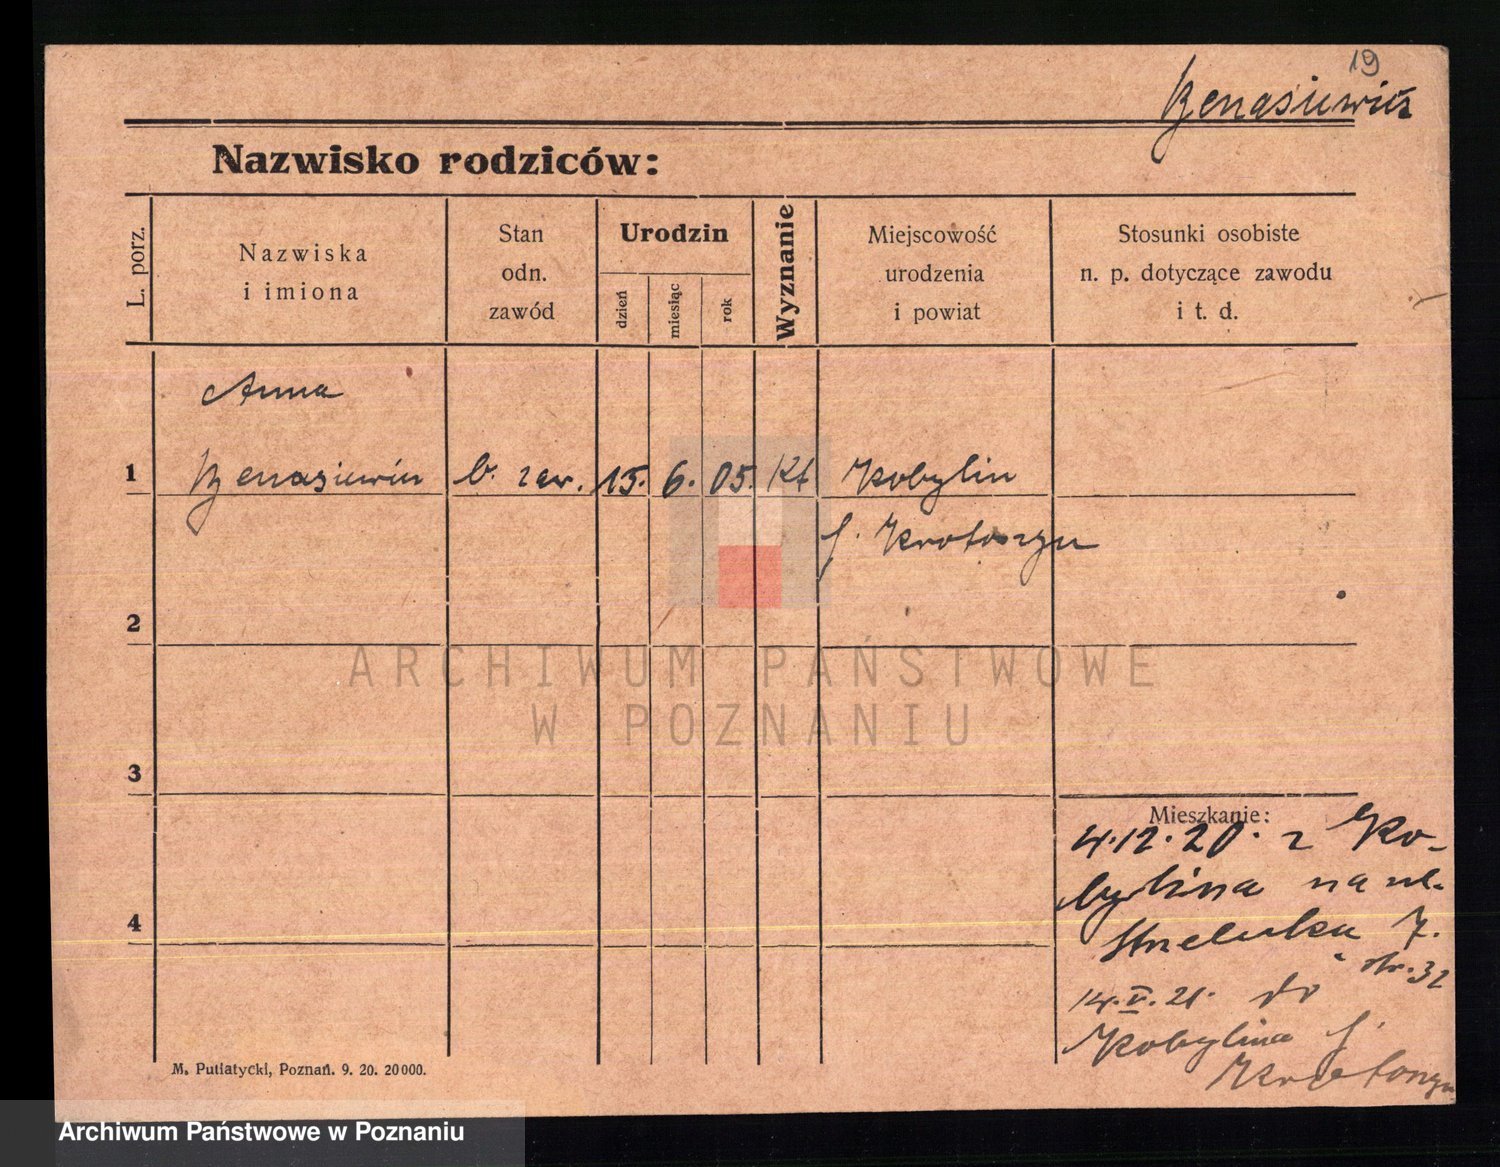 19
Benasiewicz
Nazwisko rodziców:
L. porz.
Nazwiska
i imiona
Stan
odn.
zawód
Urodzin
dzień
miesiąc
rok
Wyznanie
Miejscowość
urodzenia
i powiat
Stosunki osobiste
n. p. dotyczące zawodu
i t. d.
Anna
1 Benasiewicz b. zaw. 15. 6. 05. Kt Kobylin
Krotoszyn
2
3
4
Mieszkanie:
4.12.20. z Ko-
bylina na ul.
Strzelecka 7.
str. 32
14.V.21. do
Kobylina
Krotoszyn
M. Putiatycki, Poznań. 9. 20. 20000.
ARCHIWUM PAŃSTWOWE
W POZNANIU
Archiwum Państwowe w Poznaniu